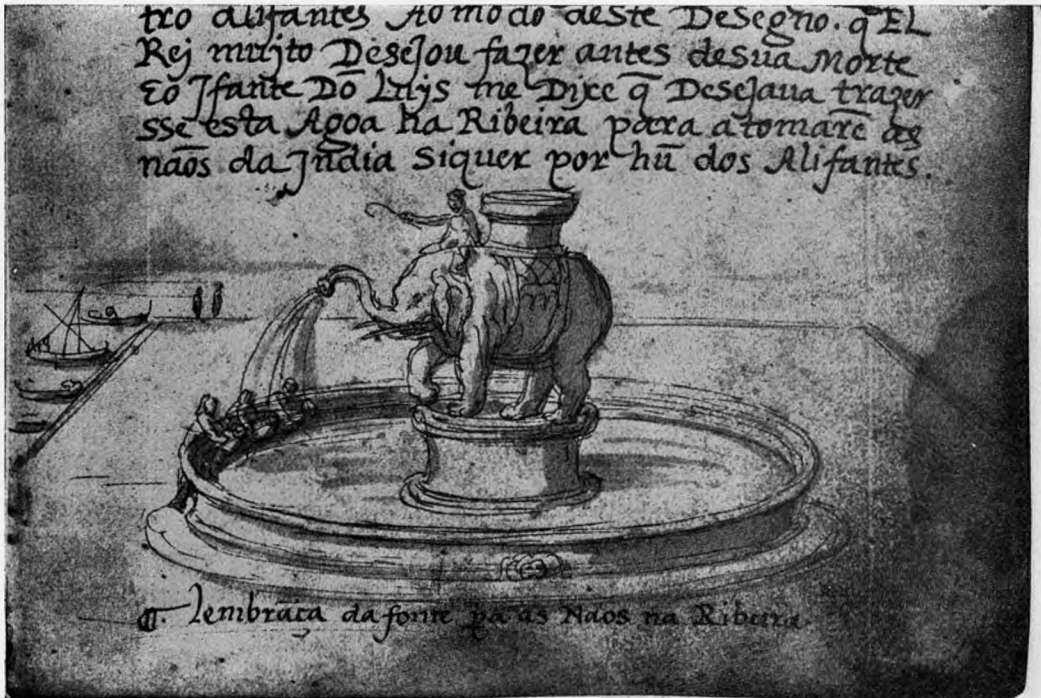 tro alifantes Ao modo deste Desegno. q̃ EL
Rej mujto Desejou fazer antes de sua Morte
Eo Jfante Dõ Luys me Dixe q̃ Desejaua trazer
sse esta Agoa ha Ribeira para a tomarẽ as
naos da Jndia siquer por hũ dos Alifantes.
¶. lembraça da fonte pa as Naos na Ribeira